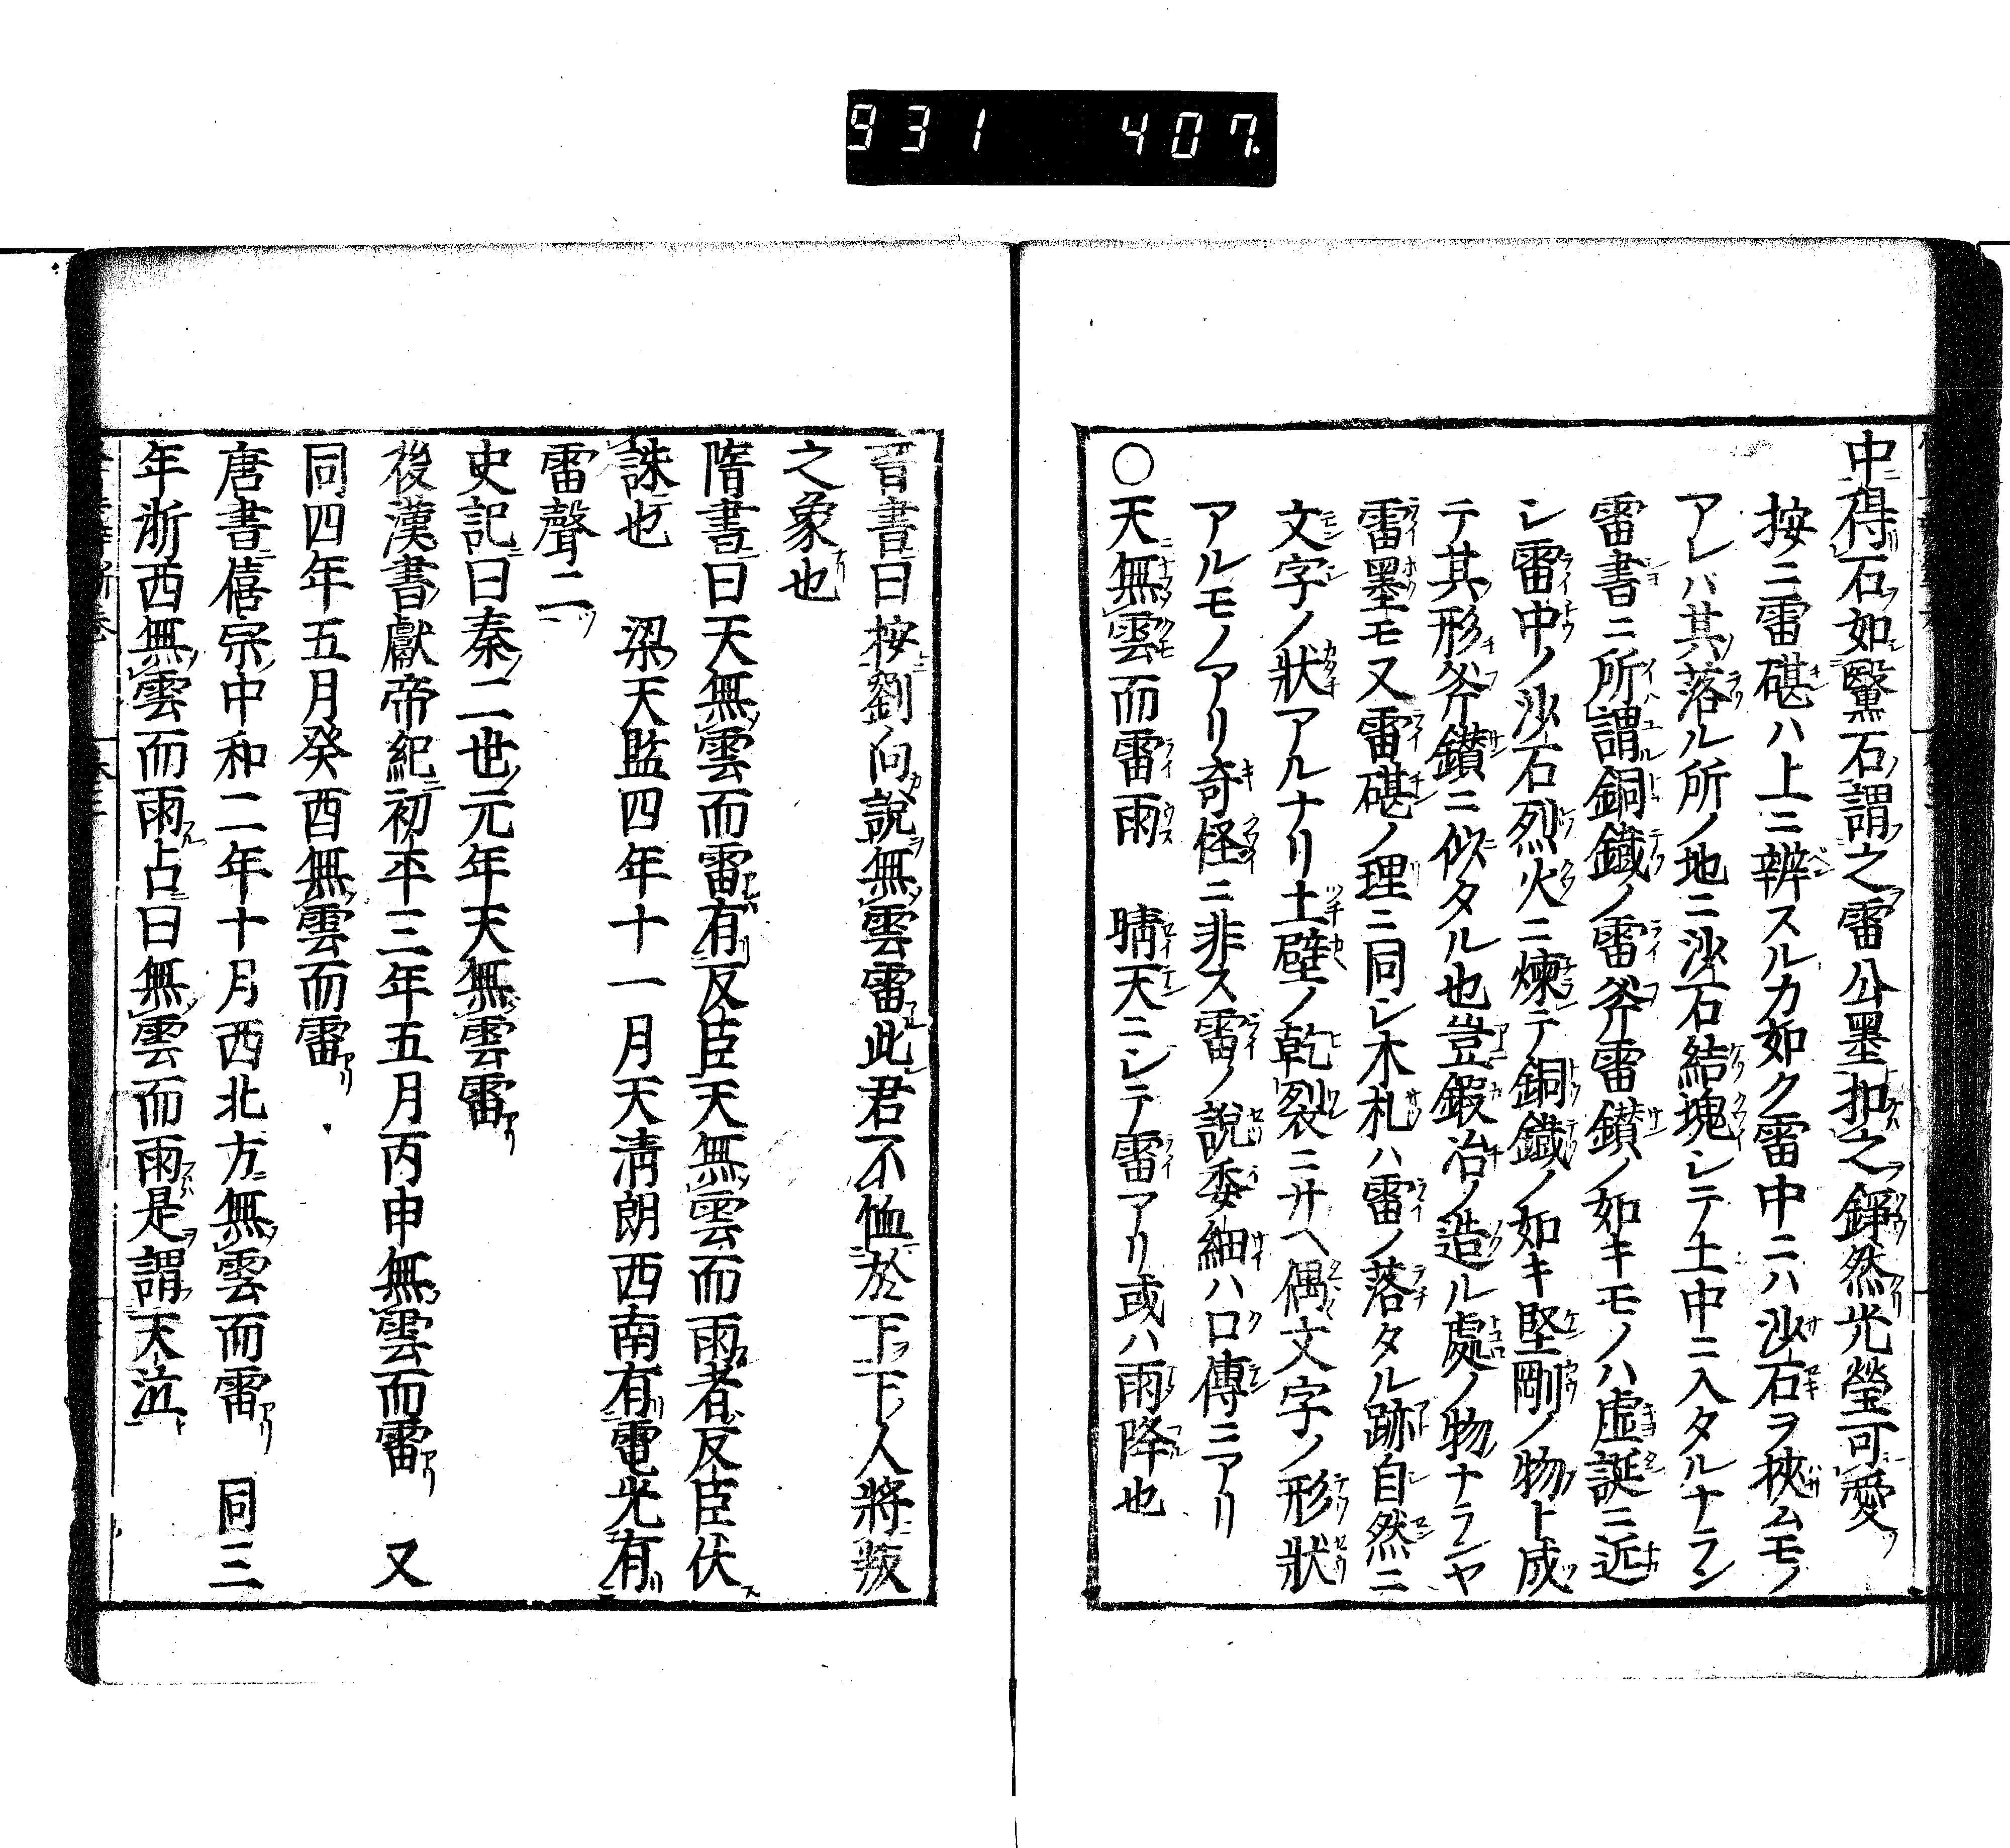 931 407
中得石如黳石謂之雷公墨扣之錚然光瑩可愛
按ニ雷碪ハ上ニ辨スルカ如ク雷中ニハ沙石ヲ挾ムモノ
アレバ其落ル所ノ地ニ沙石結塊シテ土中ニ入タルナラン
雷書ニ所謂銅鐵ノ雷斧雷鑚ノ如キモノハ虚誕ニ近
シ雷中ノ沙石烈火ニ煉テ銅鐵ノ如キ堅剛ノ物ト成
テ其形斧鑚ニ似タル也豈鍜冶ノ造ル處ノ物ナランヤ
雷墨モ又雷碪ノ理ニ同シ木札ハ雷ノ落タル跡自然ニ
文字ノ狀アルナリ土壁ノ乾裂ニサヘ偶文字ノ形狀
アルモノアリ奇怪ニ非ス雷ノ說委細ハ口傳ニアリ
〇天無雲而雷雨 晴天ニシテ雷アリ或ハ雨降也
晋書曰按劉向說無雲雷此君不恤於下下人將叛
之象也
隋書曰天無雲而雷有反臣天無雲而雨者反臣伏
誅也 梁天監四年十一月天淸朗西南有電光有
雷聲二
史記曰秦二世元年天無雲雷
後漢書獻帝紀初平三年五月丙申無雲而雷 又
同四年五月癸酉無雲而雷
唐書僖宗中和二年十月西北方無雲而雷 同三
年浙西無雲而雨占曰無雲而雨是謂天泣